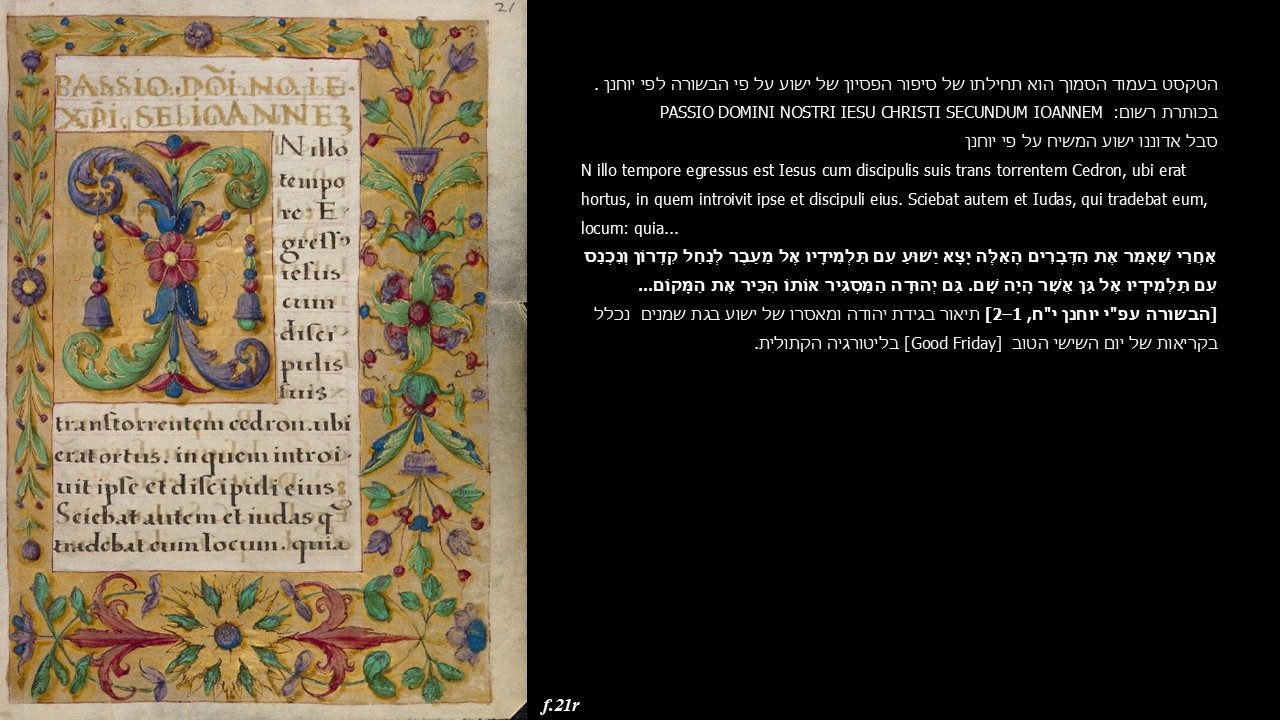 21
PASSIO. DÕI. NO. IE.
XP̃I. SE
IOANNEZ
N illo
tempo
re: E
gressꝰ
iesus
cum
disci
pulis
suis
trans torrentem cedron. ubi
erat ortus. in quem introi-
uit ipse et discipuli eius:
Sciebat autem et iudas q
tradebat eum locum. quia
הטקסט בעמוד הסמוך הוא תחילתו של סיפור הפסיון של ישוע על פי הבשורה לפי יוחנן .
בכותרת רשום: PASSIO DOMINI NOSTRI IESU CHRISTI SECUNDUM IOANNEM
סבל אדוננו ישוע המשיח על פי יוחנן
N illo tempore egressus est Iesus cum discipulis suis trans torrentem Cedron, ubi erat
hortus, in quem introivit ipse et discipuli eius. Sciebat autem et Iudas, qui tradebat eum,
locum: quia...
אַחֲרֵי שֶׁאָמַר אֶת הַדְּבָרִים הָאֵלֶּה יָצָא יֵשׁוּעַ עִם תַּלְמִידָיו אֶל מֵעֵבֶר לְנַחַל קִדְרוֹן וְנִכְנַס
עִם תַּלְמִידָיו אֶל גַּן אֲשֶׁר הָיָה שָׁם. גַּם יְהוּדָה הַמַּסְגִּיר אוֹתוֹ הִכִּיר אֶת הַמָּקוֹם...
[הבשורה עפ"י יוחנן י"ח, 1–2] תיאור בגידת יהודה ומאסרו של ישוע בגת שמנים נכלל
בקריאות של יום השישי הטוב [Good Friday] בליטורגיה הקתולית.
f.21r